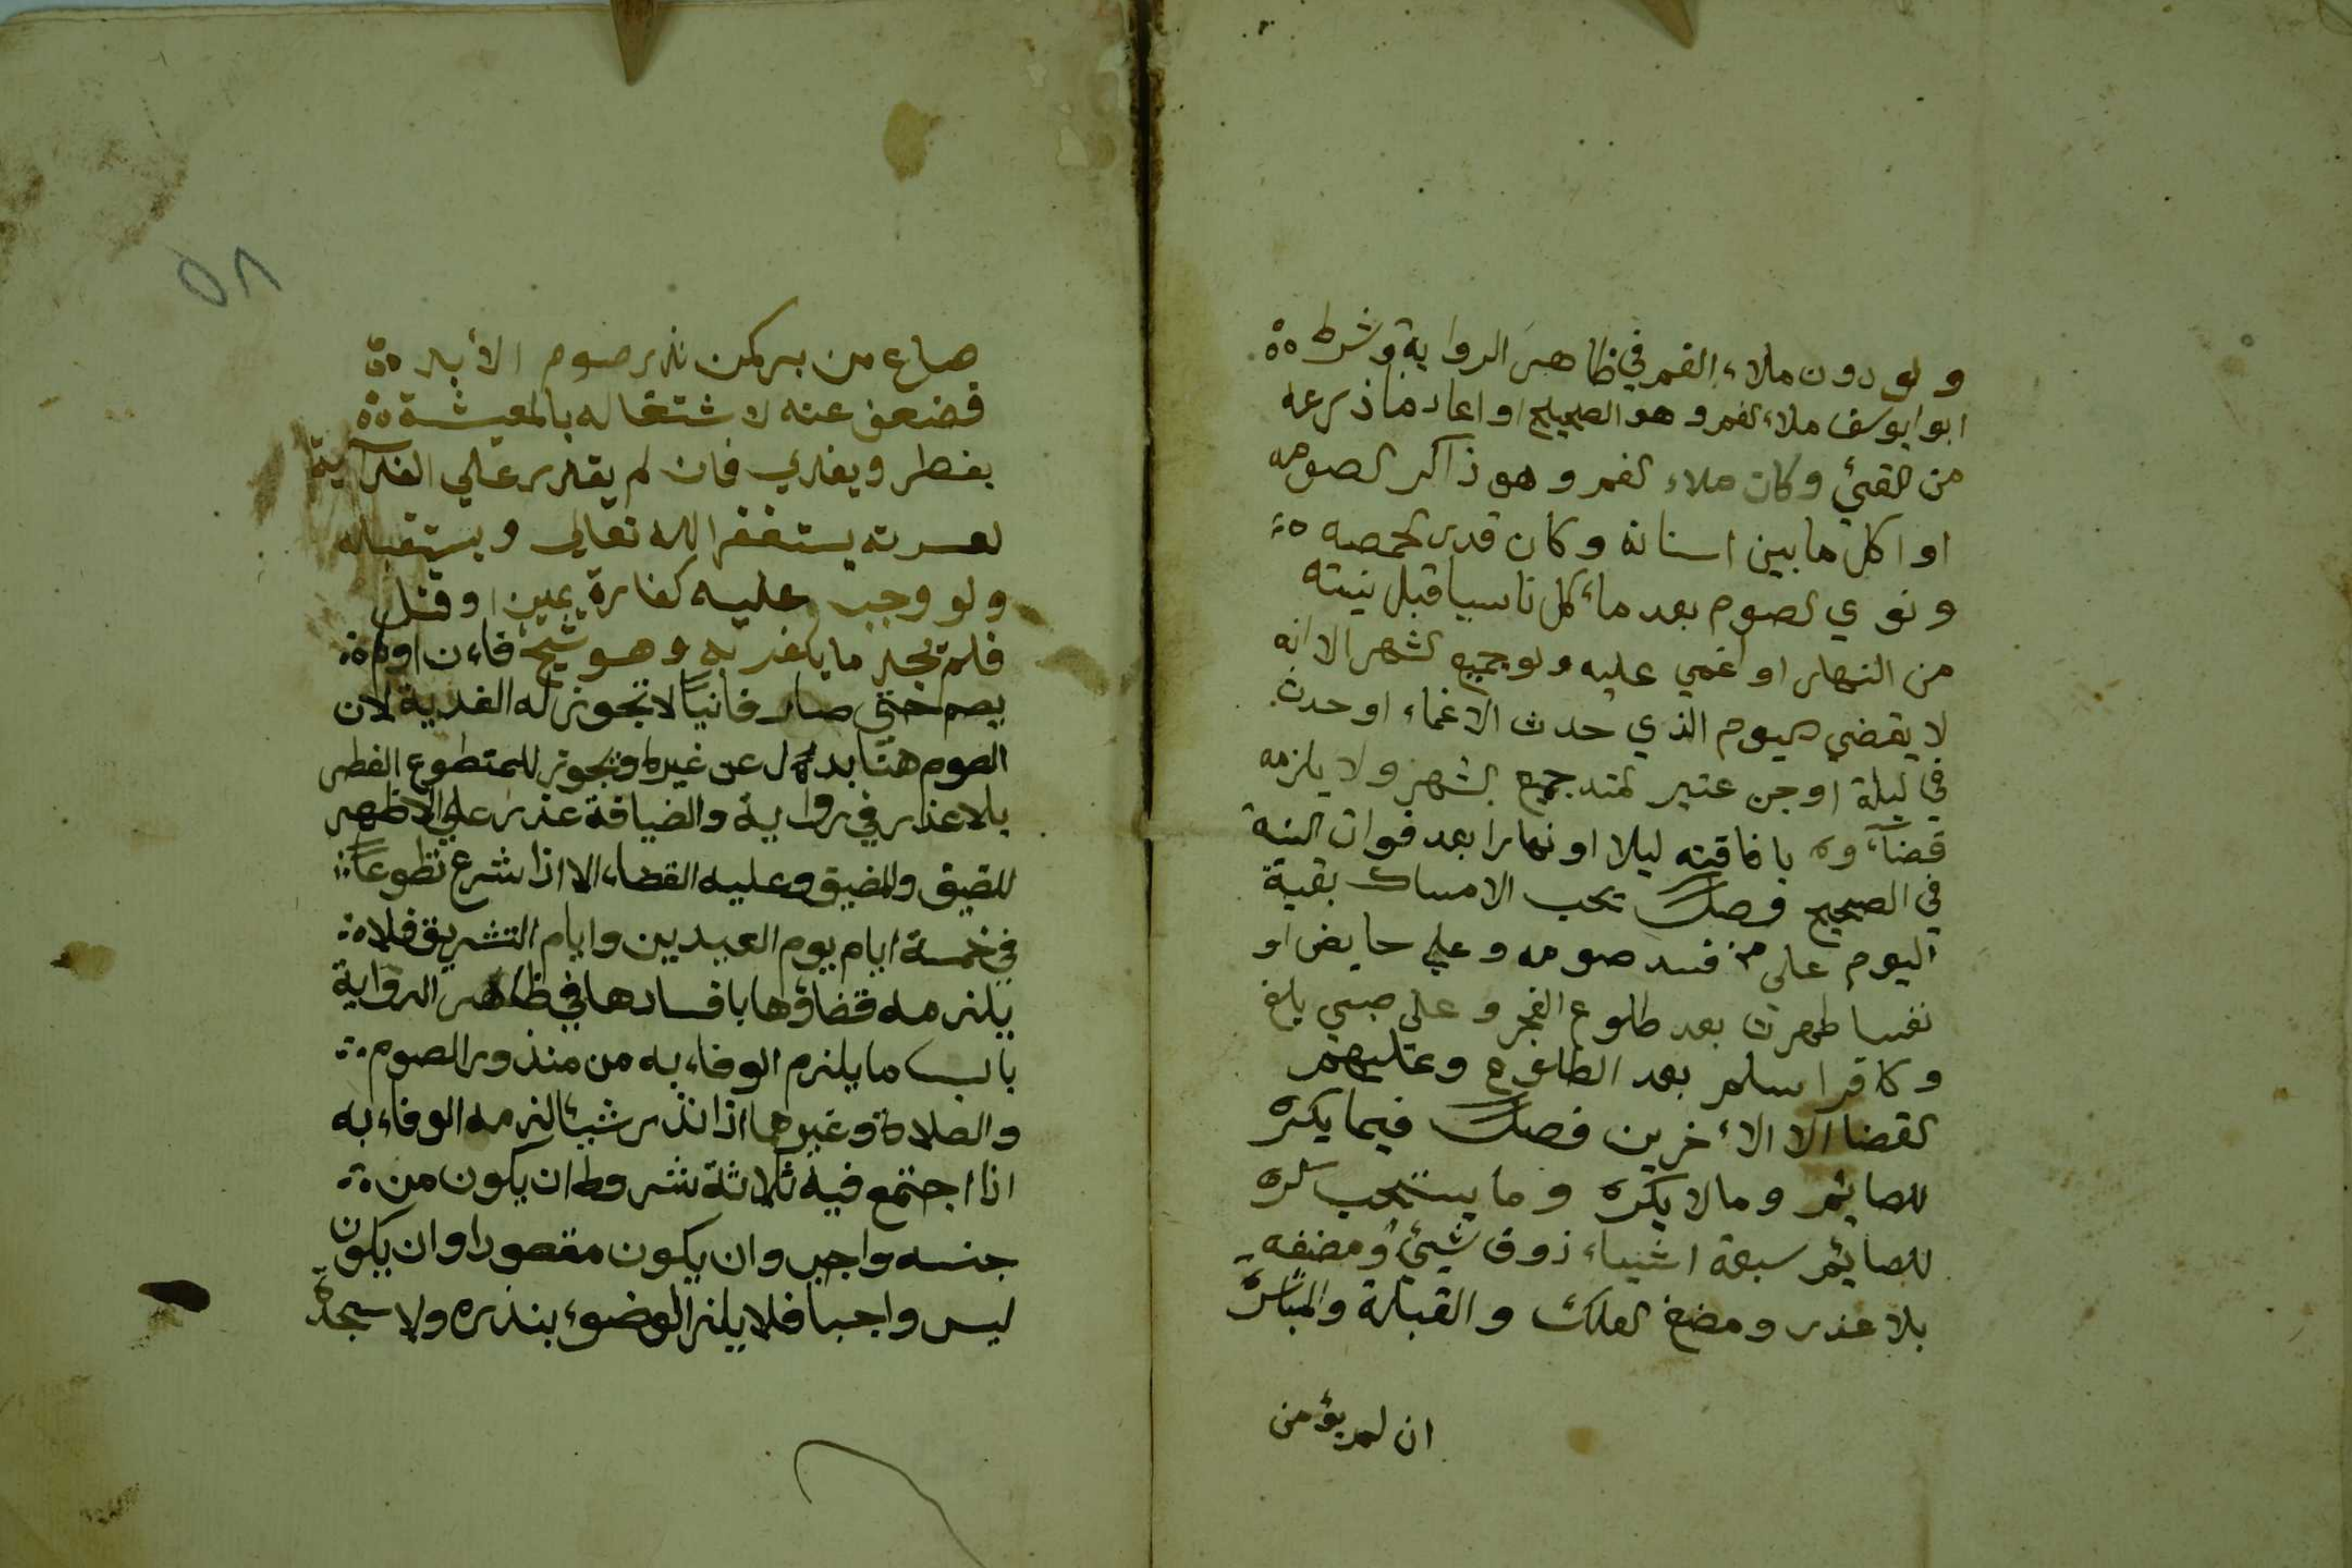 ولو دون ملاء الفم في ظاهر الرواية وشرط ه
ابو ايوسف ملاء الفم وهو الصحيح او اعاد ما ذرعه
من القيئ وكان ملاء الفم وهو ذاكر لصومه
او اكل ما بين اسنانه وكان قدر الحمصه ه
ونوي الصوم بعد ما أكل ناسيا قبل نيته
من النهار او اغمي عليه ولو جميع الشهر الا انه
لا يقضي اليوم الذي حدث الاغماء او حدث
في ليلة او جن غير ممتد جميع الشهر ولا يلزمه
قضآءوه بافاقته ليلا او نهارا بعد فوات النية
في الصحيح فصل يجب الامساك بقية
اليوم على من فسد صومه وعلي حايض او
نفسا طهرت بعد طلوع الفجر وعلى صبي بلغ
وكافر اسلم بعد الطلوع وعليهم
القضا الا الأخرين فصل فيما يكره
للصايم وما لا يكره وما يستحب كره
للصايم سبعة اشياء ذوق شيئ ومضغه
بلا عذر ومضغ العلك والقبلة والمباشرة
ان لم يؤمن
٥٨
صاع من بر كمن نذر صوم الأبد ه
فضعف عنه لاشتغاله بالمعيشة ه
يفطر ويفدي فان لم يقدر علي الفدآية
لعسرته يستغفر الله تعالي ويستقيله
ولو وجب عليه كفارة يمين او قتل
فلم يجد ما يكفر به وهو شيخ فاءن او لم ه
يصم حتى صار فانياً لا تجوز له الفدية لان
الصوم هنا بدل عن غيره ويجوز للمتطوع الفطر
بلا عذر في رواية والضيافة عذر علي الاظهر
للضيق والمضيق وعليه القضاء الا اذا شرع تطوعاً
في خمسة ايام يوم العيديين وايام التشريق فلا ه
يلزمه قضاؤها بافسادها في ظاهر الرواية
باب ما يلزم الوفاء به من منذور الصوم
والصلاة وغيرهما اذا نذر شيئا لزمه الوفاء به
اذا اجتمع فيه ثلاثة شروط ان يكون من
جنسه واجب وان يكون مقصودا وان يكون
ليس واجبا فلا يلزم الوضوء بنذره ولا سجدة